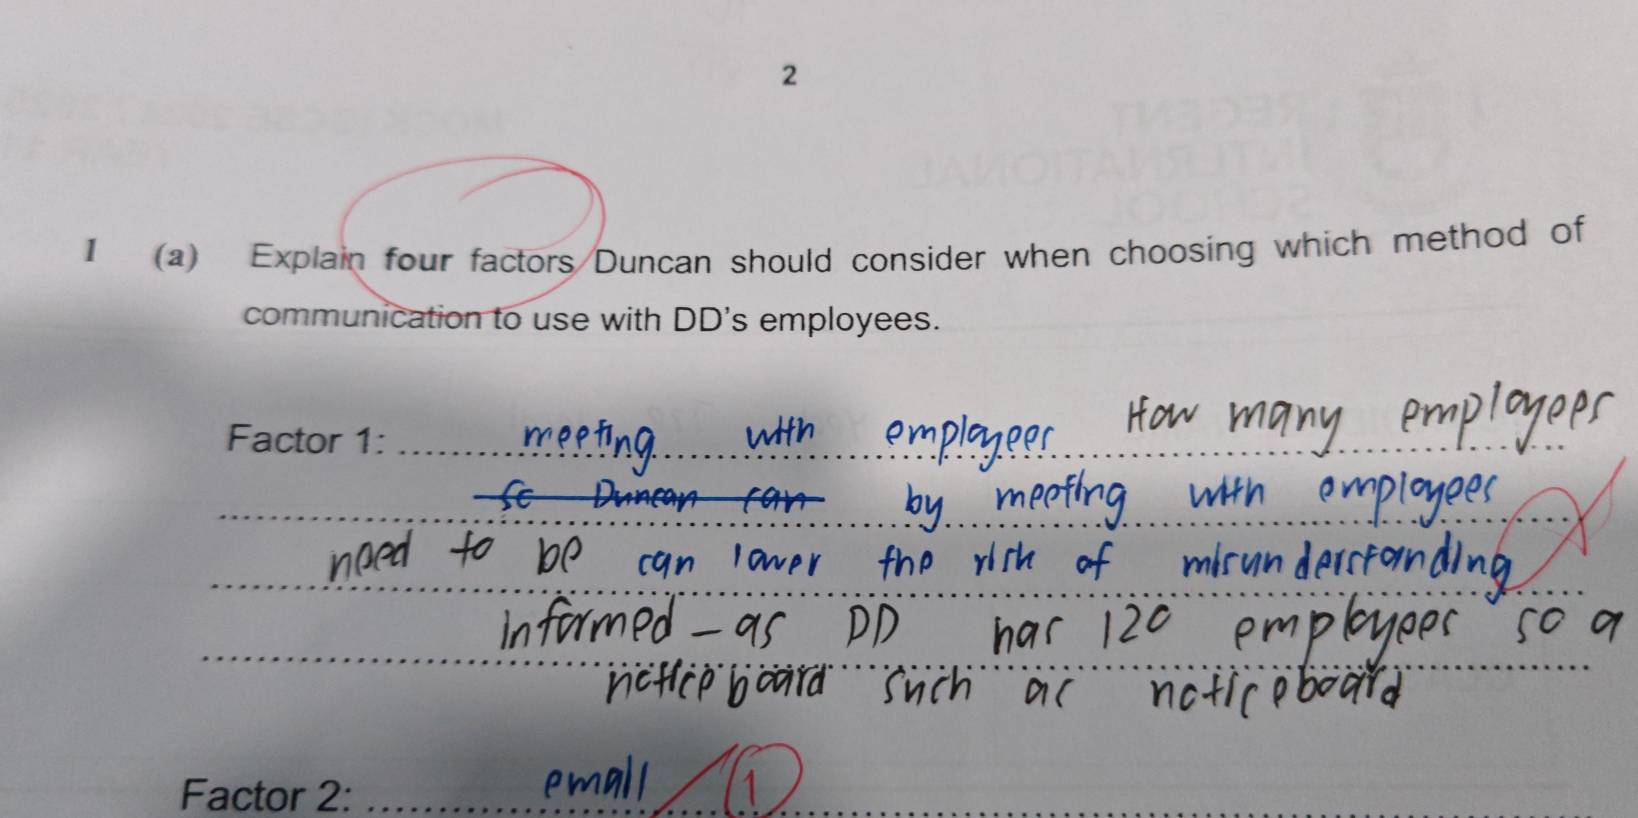 2
1 (a) Explain four factors Duncan should consider when choosing which method of
communication to use with DD's employees.
Factor 1: meeting with employees How many employees
so Duncan can by meeting with employees
need to be can lower the risk of misunderstanding
informed - as DD has 120 employees so a
noticeboard such as noticeboard
Factor 2: email 1